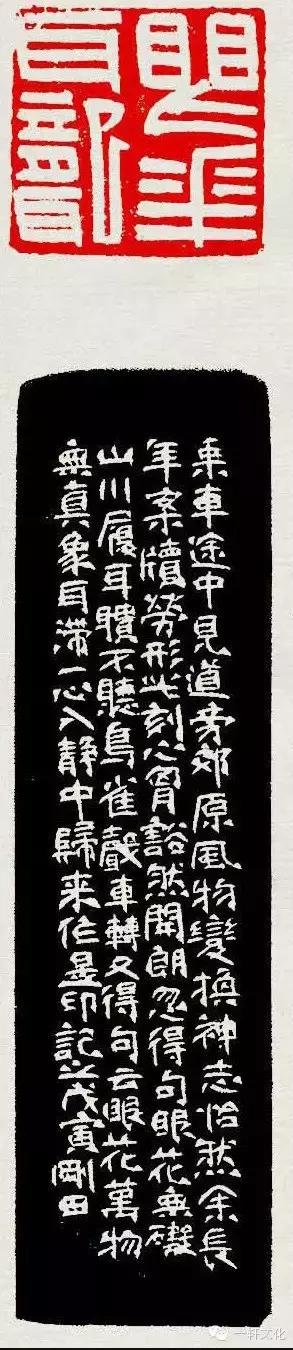 乘車途中見道旁郊原風物變換神志怡然余長
年案牘勞形此刻心胷豁然開朗忽得句眼花無礙
山川履耳聵不聽鳥雀聲車轉又得句云眼花萬物
無真象耳滯一心入靜中歸来作是印記之戊寅剛田
一轩文化